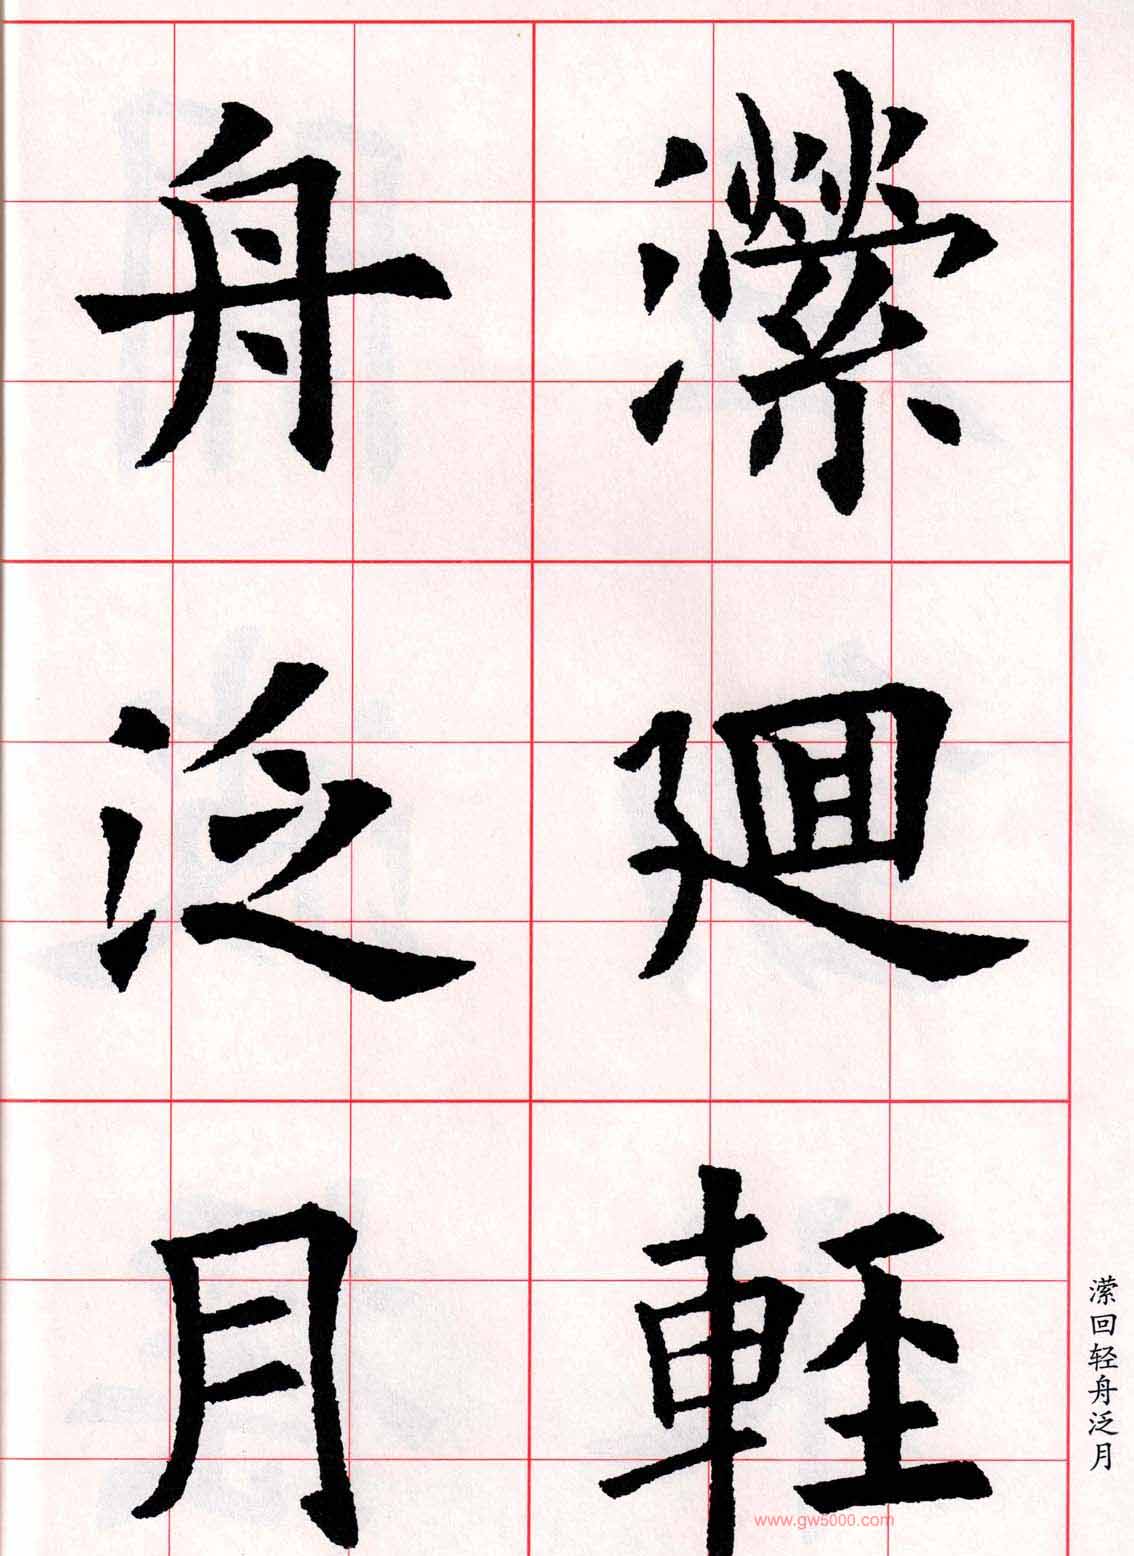 濚廻輕
舟泛月
潆回轻舟泛月
www.gw5000.com